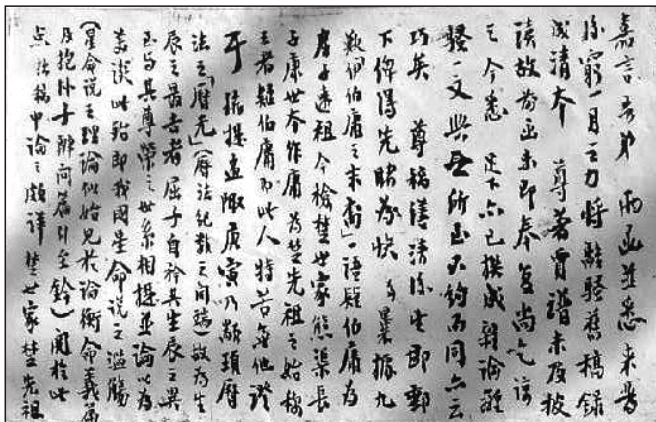 嘉言吾弟 兩函並悉來普
後窮一月之力將離騷舊稿錄
成清本 尊著賈譜未及披
讀故前函未即奉復尚乞諒
之今悉 足下亦已撰成離
騷一文與吾所見不約而同亦云
巧矣 尊稿謄清後望即郵
下俾得先睹為快 據九
歎「伊伯庸之末胄」一語疑伯庸為
屈子遠祖今檢楚世家熊渠長
子康世本作庸為楚先祖之始稱
王者疑伯庸即此人特苦無他證
耳 攝提孟陬庚寅乃顓頊曆
法之「曆元」(曆法紀數之開端故為生
辰之最吉者屈子自矜其生辰之異
至與其尊榮之世系相提並論以為
美談此殆即我國星命說之濫觴
(星命說之理論似始見於論衡命義篇
及抱朴子辨問篇引玉鈐)關於此
点拙稿中論之頗詳楚世家楚先祖